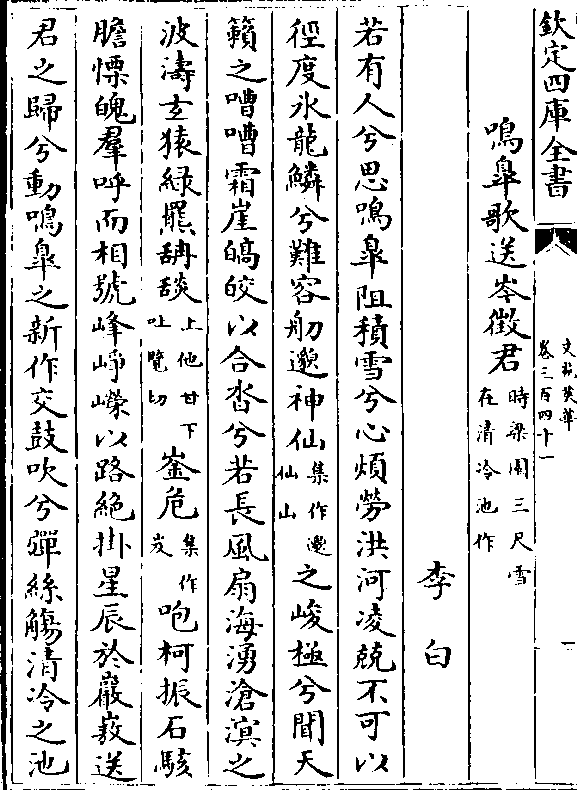 欽定四庫全書
文苑英華
卷三百四十一
一
鳴臯歌送岑徵君時梁園三尺雪在清冷池作
李白
若有人兮思鳴臯阻積雪兮心煩勞洪河凌兢不可以
徑度氷龍鱗兮難容舠邈神仙集作邈仙山之峻極兮聞天
籟之嘈嘈霜崖皜皎以合沓兮若長風扇海湧滄溟之
波濤玄猿綠羆舑舕上他甘下吐覽切崟危集作岌咆柯振石駭
膽慄魄羣呼而相號峰崢嶸以路絶掛星辰於巖嶅送
君之歸兮動鳴臯之新作交鼓吹兮彈絲觴清冷之池